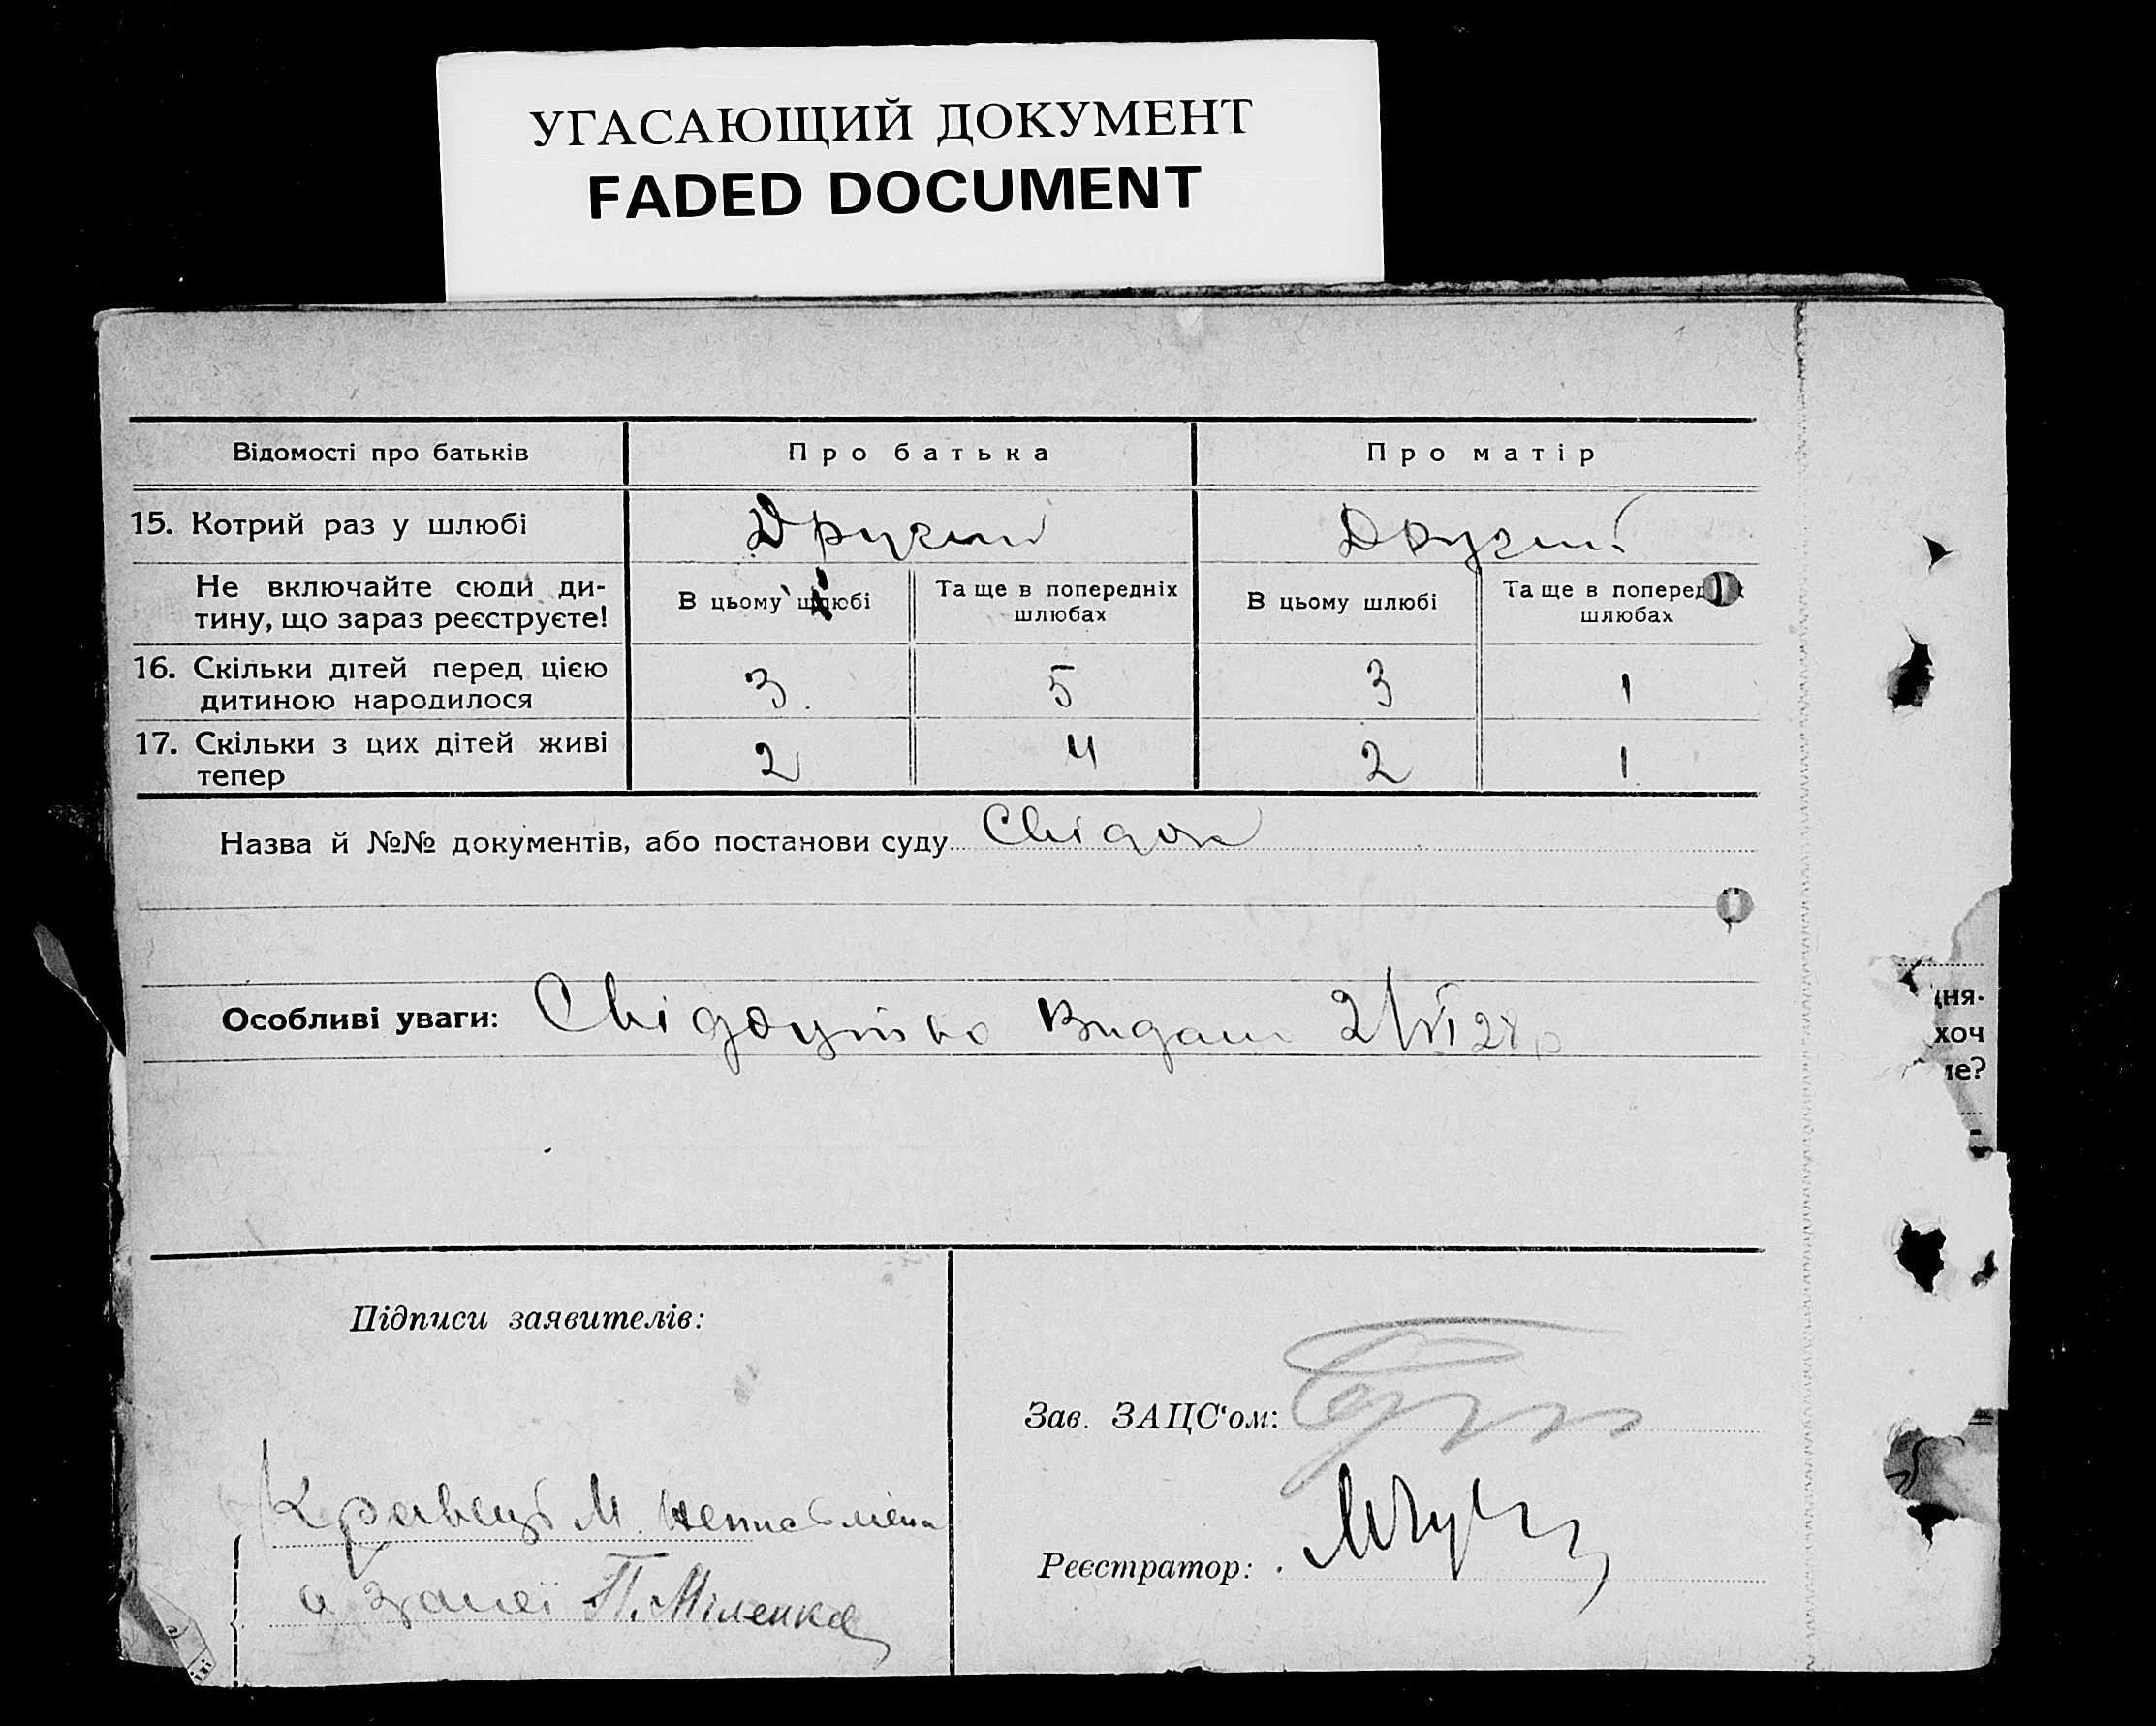 УГАСАЮЩИЙ ДОКУМЕНТ
FADED DOCUMENT
Відомості про батьків
Про батька
Про матір
15. Котрий раз у шлюбі
Другий
Другий
Не включайте сюди ди-
тину, що зараз реєструєте!
В цьому шлюбі
Та ще в попередніх
шлюбах
В цьому шлюбі
Та ще в поперед
шлюбах
16. Скільки дітей перед цією
дитиною народилося
3
5
3
1
17. Скільки з цих дітей живі
тепер
2
4
2
1
Назва й №№ документів, або постанови суду
Особливі уваги: Свідоцтво Видано 2/VI 28 р
дня.
хоч
ме?
Підписи заявителів:
Зав. ЗАЦС‘ом:
Кравець М. неписьмена
а за неї П. Міленко
Реєстратор: